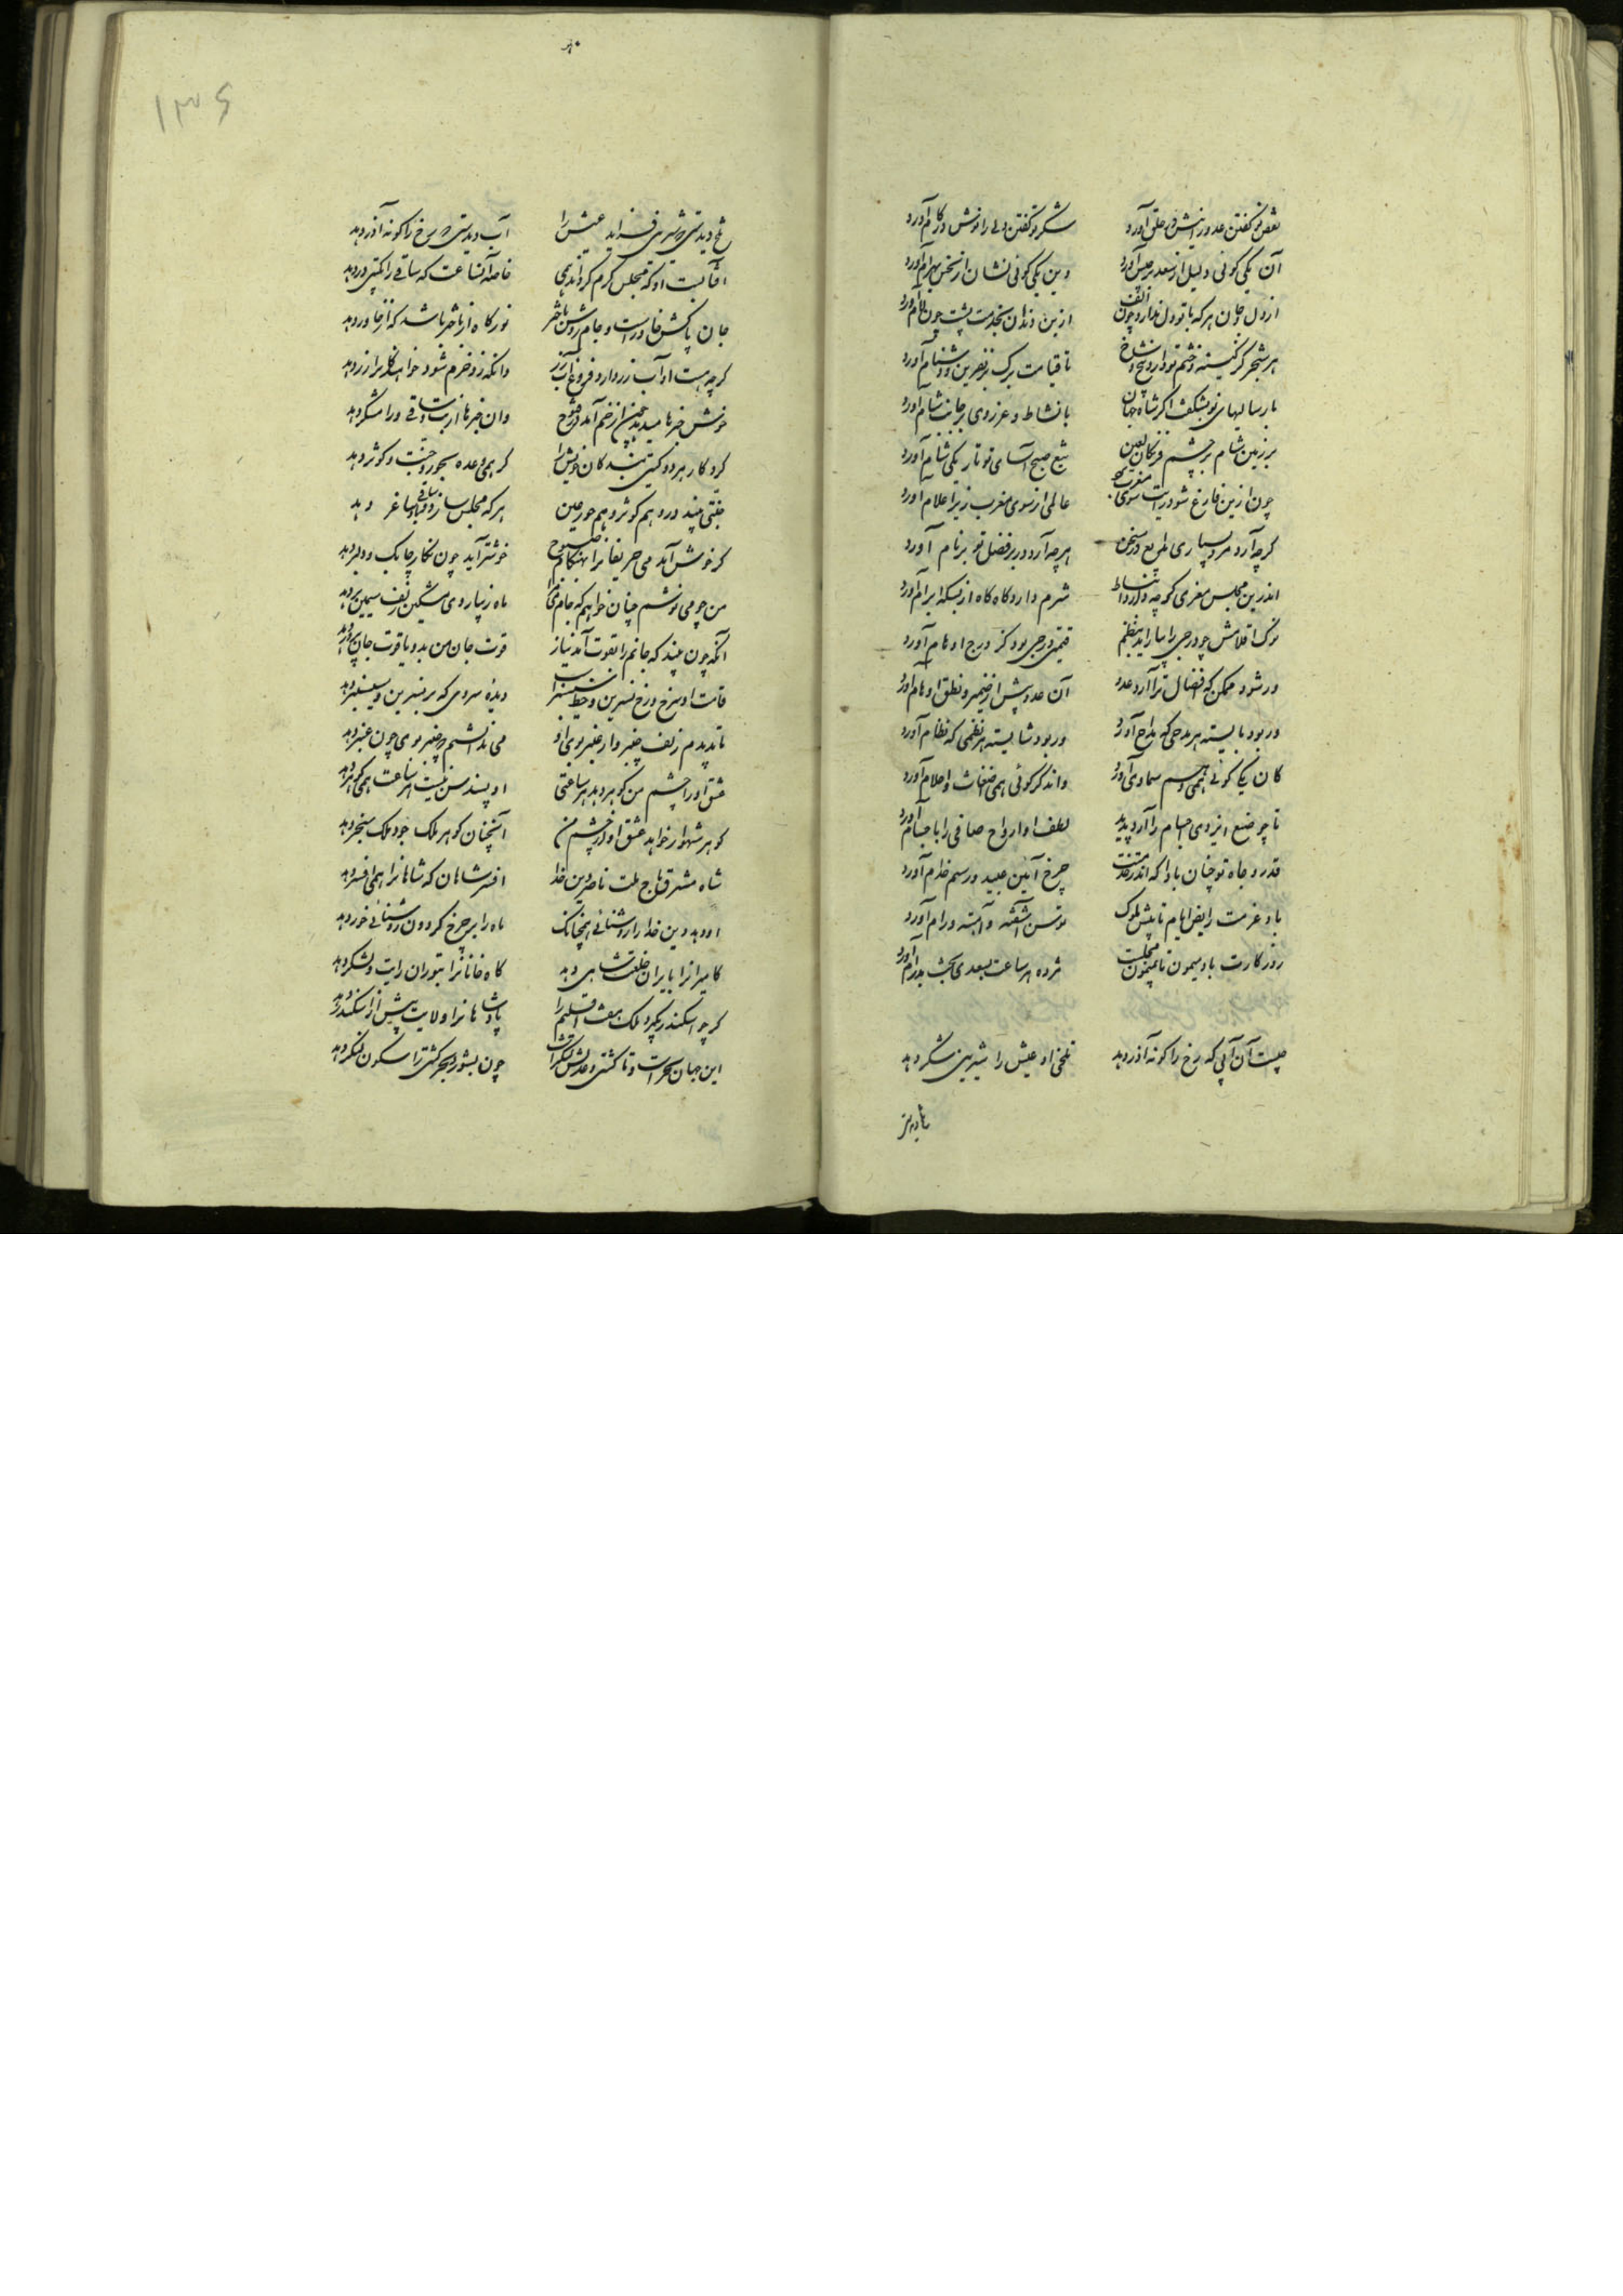 نقض تو گفتن عدو را نیش در حلق آورد شکر تو گفتن ولی را نوش در کام آورد
آن یکی گوئی دلیل از سعد برجیس آورد وین یکی گوئی نشان از نحس بهرام آورد
از دل و جان هر که با تو دل ندارد چون الف از بن دندان بخدمت پشت چون لام آورد
هر شجر کز کینه و خشم تو دارد بیخ و شاخ تا قیامت برگ و بر نفرین و دشنام آورد
پارسائیهای تو نشکفت اگر شاه جهان با نشاط و عز روی بر جانب شام آورد
بر زمین شام بر چشم فرنگان لعین تیغ صبح آسای تو تاریکی شام آورد
چون ازین فارغ شود رایت سوی مغرب کشد عالمی از سوی مغرب زیر اعلام آورد
گرچه آرد مرد بسیاری طمع در سخن هرچه آرد در بر فضل تو برنام آورد
اندرین مجلس معزی گرچه دارد انبساط شرم دارد گاه گاه از بسکه ابرام آورد
نوک اقلامش چو درجی را بیاراید بنظم قیمتی درجی بود کز درج اوهام آورد
ور شود ممکن که افضال ترا آرد عدد آن عدد بیش از ضمیر و نطق و اوهام آورد
ور بود بایسته هر مدحی که مداح آورد ور بود شایسته هر نظمی که نظام آورد
کان یکی گوئی همی وهم سماوی آورد واندگر گوئی همی اضغاث و احلام آورد
تا چو صنع ایزدی اجسام را آرد پدید لطف او ارواح صافی را باجسام آورد
قدر و جاه تو چنان بادا که اندر خدمتت چرخ آئین عبید و رسم خدام آورد
باد عزمت رایض ایام تا پیش ملوک توسن آشفته و آهسته و رام آورد
روزگارت باد میمون تا بمیمون مجلست مژده هر ساعت بسعدی بخت پدرام آورد
چیست آن آبی که رخ را گونه آذر دهد تلخی او عیش را شیرینی شکر دهد
۱۳۶
تلخ دیدستی که شیرینی فزاید عیش را آب دیدستی که رخ را گونه آذر دهد
آفتابست او که مجلس گرم گرداند همی خاصه آنساعت که ساقی را کتی در دهد
جان پاکش خاورست و جام روشن باختر نور گاه از باختر باشد که از خاور دهد
گرچه هست او آب زر دارد فروغ آب زر وانکه زو خرم شود خواهنده را زر دهد
خوش خبرها میدهد چندین از خم آمد در قدح وان خبرها از لب ساقی ورا شکر دهد
کردگار هر دو گیتی بندگان خویش را گر همی وعده بحور و جنت و کوثر دهد
جنتی بیند درو هم کوثر و هم حور عین هر که مجلس سازد و ساقی و ساغر دهد
گر خوش آید می حریفانرا بهنگام صبوح خوشتر آید چون نگار چابک و دلبر دهد
من چو می نوشم چنان خواهم که جام می مرا ماه زیبا روی مشکین زلف سیمین بر دهد
آنکه چون بیند که جانم را بقوت آمد نیاز قوت جان من بدو یاقوت جان پرور دهد
قامت او سرو و رخ نسرین و خط سیسنبرا دیده سروی که بر نسرین و سیسنبر دهد
تا ندیدم زلف چنبروار عنبر بوی او می ندانستم که چنبر بوی چون عنبر دهد
عشق او را چشم من گوهر دهد هر ساعتی او پسند من نیست هر ساعت همی گوهر دهد
گوهر شهوار خواهد عشق او از چشم من آنچنان گوهر ملک جود ملک سنجر دهد
شاه مشرق تاج ملت ناصر دین خدا افسر شاهان که شاهانرا همی افسر دهد
او دهد دین خدا را روشنائی همچنانک ماه را بر چرخ گردون روشنائی خور دهد
گاه میرانرا بایران خلعت شاهی دهد گاه خانانرا بتوران رایت و لشکر دهد
گر چو اسکندر بگیرد ملک هفت اقلیم را پادشاهانرا ولایت بیش از اسکندر دهد
این جهان بحر است و ما کشتی و عدلش لنگر است چون بشورد بحر کشتی را سکون لنگر دهد